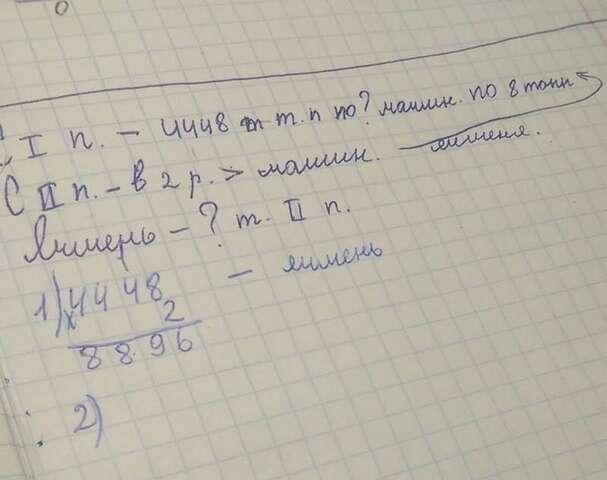 0
I п. - 4448 т т. п по? машин. по 8 тонн
С II п. - в 2 р. > машин. — ячменя.
Ячмень - ? т. II п.
1) 4448 - ячмень
х 2
8896
2)